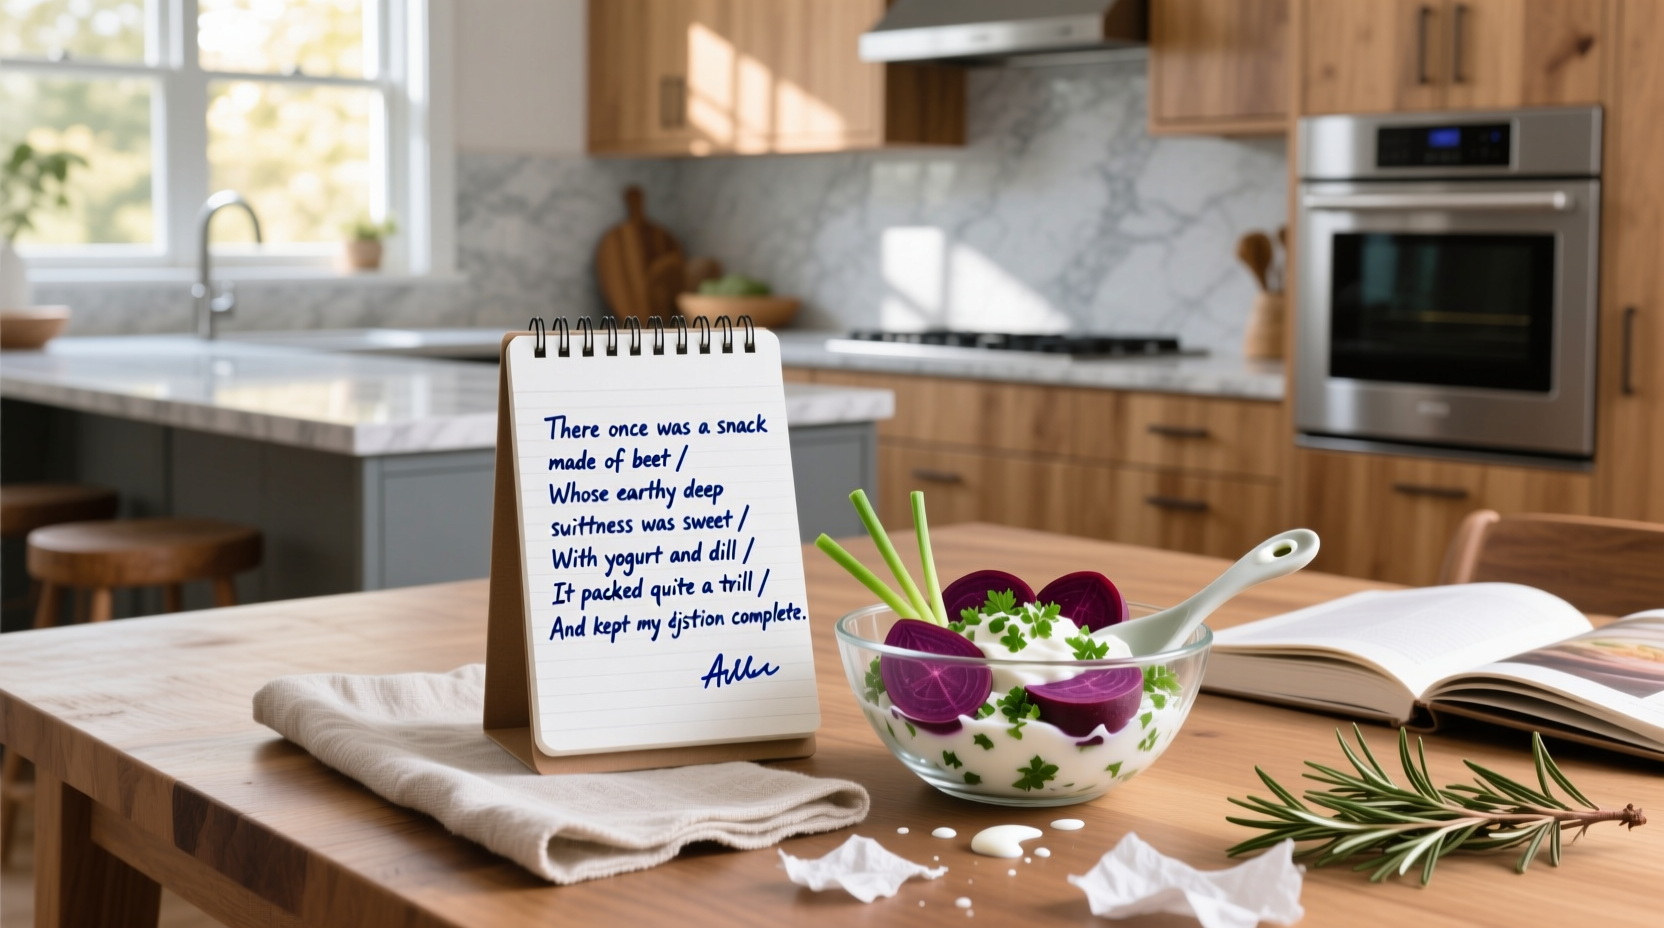 There once was a snack
made of beet /
Whose earthy deep
suittness was sweet /
With yogurt and dill /
It packed quite a trill /
And kept my djstion complete.